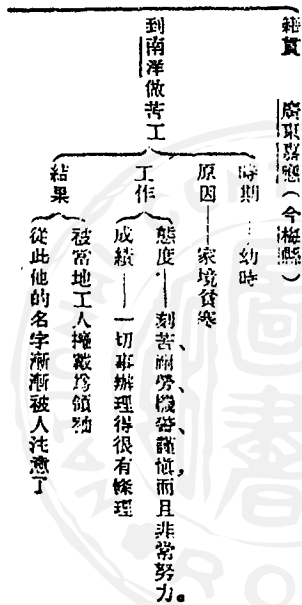 籍貫　廣東嘉應（今梅縣）
到南洋做苦工
時期——幼時
原因——家境貧寒
工作
態度——刻苦耐勞、機警、謹愼，而且非常努力。
成績——一切事辦理得很有條理
結果
被當地工人擁戴爲領袖
從此他的名字漸漸被人注意了
圖書